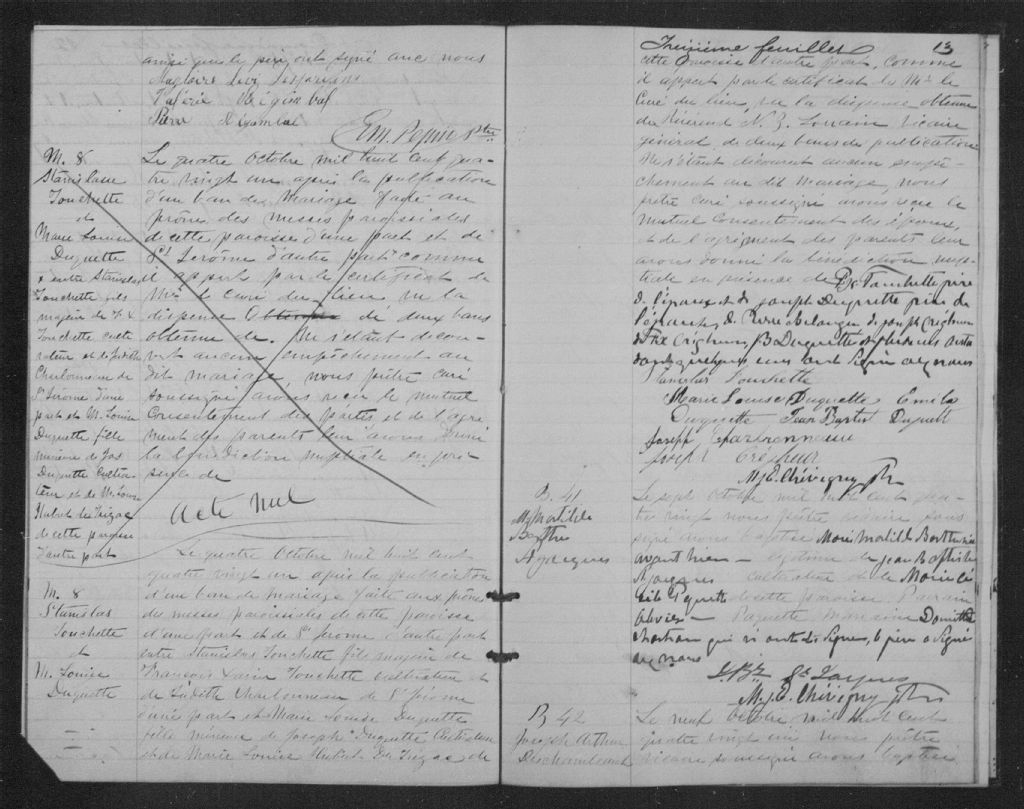 ainsi que le père, ont signé avec nous
Magloire
Valérie
Pierre
Em. Pepin Ptre
M. 8
Stanislas
Touchette
et
Marie Louise
Duquette
entre Stanislas
Touchette fils
majeur de F. X.
Touchette culti-
vateur et de Judith
Charbonneau de
St Jérome d'une
part et M. Louise
Duquette fille
mineure de Jos
Duquette Cultiva-
teur et de M. Louise
de cette paroisse
d'autre part
Le quatre Octobre mil huit cent qua-
tre vingt un après la publication
d'un ban de mariage faite au
prône des messes paroissiales
de cette paroisse d'une part et de
St Jérôme d'autre part comme
il appert par le certificat de
Mr le Curé du lieu vu la
dispense de deux bans
obtenue de. Ne s'étant décou-
vert aucun empêchement au
dit mariage, nous prêtre curé
soussigné avons reçu le mutuel
Consentement des parties et de l'agré
ment des parents leur avons donné
la bénédiction nuptiale en pré-
sence de
Acte nul
M. 8
Stanislas
Touchette
et
M. Louise
Duquette
Le quatre Octobre mil huit cent
quatre vingt un après la publication
d'un ban de mariage faite aux prônes
des messes paroissiales de cette paroisse
d'une part et de St Jérome d'autre part
entre Stanislas Touchette fils majeur de
François Xavier Touchette cultivateur et
de Judith Charbonneau de St Jérome
d'une part et Marie Louise Duquette
fille mineure de Joseph Duquette Cultivateur
et de Marie Louise de
Treizième feuillet 13
cette paroisse d'autre part, comme
il appert par le certificat de Mr le
Curé du lieu, vu la dispense obtenue
du Révérend N. Z. Lorrain Vicaire
général de deux bans de publication
Ne s'étant découvert aucun empê-
chement au dit mariage, nous
prêtre curé soussigné avons reçu le
mutuel Consentement des époux,
et de l'agrément des parents leur
avons donné la bénédiction nup-
tiale en présence de Fx Touchette père
de l'époux et de Joseph Duquette père de
l'épouse, de Pierre Belanger, de Joseph
de Fx J B Duquette et plusieurs autres
dont quelques uns ont signé avec nous
Stanislas Touchette
Marie Louise Duquette
Duquette Jean Baptist Duquett
Joseph Charbonneau
Joseph
M. J. E. Chévigny Ptr
B. 41
M. Matilde
Berthe
Le sept Octobre mil huit cent qua-
tre vingt nous prêtre vicaire sous
signé avons baptisé Marie Matilde Berthe née
avant hier — légitime de Jean Baptiste
cultivateur et de
Paquette de cette paroisse. Parrain
Olivier — Paquette Marraine
qui n'ont su signer, le père a signé
avec nous
M. J. E. Chévigny Ptr
B 42
Joseph Arthur
Deschambeault
Le neuf Octobre mil huit cent
quatre vingt un nous prêtre
vicaire soussigné avons baptisé